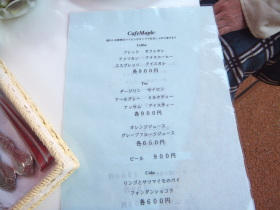 CafeMaple
Coffee
ブレンド モカブレンド
アメリカン アイスコーヒー
エスプレッソ アイスオレ
各800円
Tea
ダージリン セイロン
アールグレイ ミルクティー
アッサム アイスティー
各900円
オレンジジュース
グレープフルーツジュース
各650円
ビール 900円
Cake
リンゴとサツマイモのパイ
フォンダンショコラ
各600円